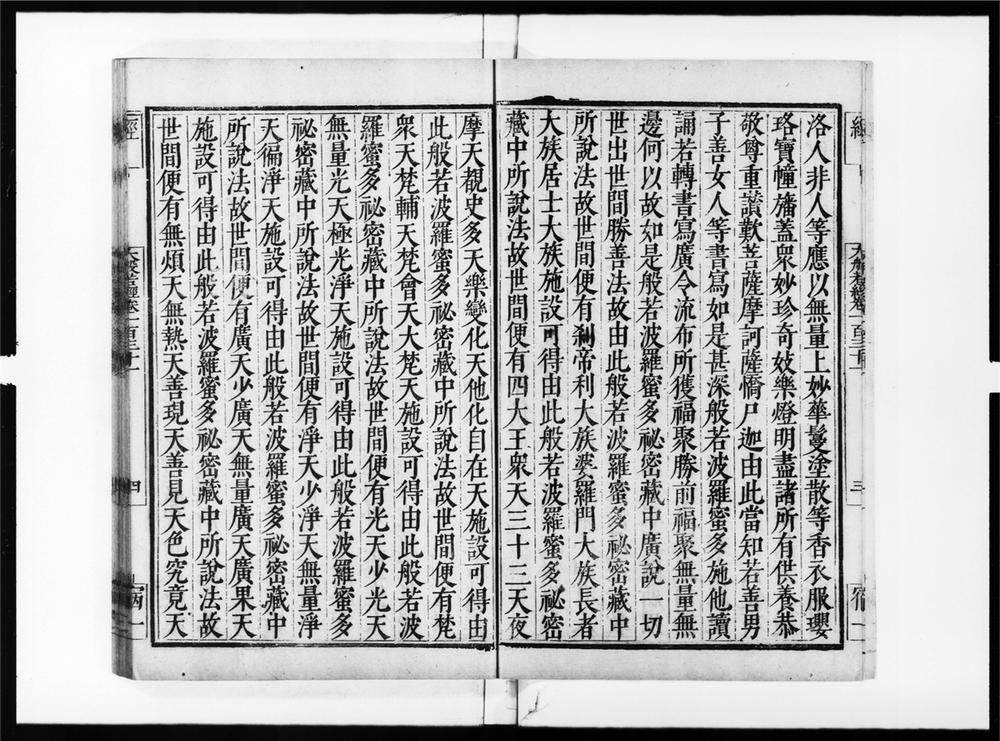 洛人非人等應以無量上妙華鬘塗散等香衣服瓔
珞寶幢旛蓋衆妙珍奇妓樂燈明盡諸所有供養恭
敬尊重讚歎菩薩摩訶薩憍尸迦由此當知若善男
子善女人等書寫如是甚深般若波羅蜜多施他讀
誦若轉書寫廣令流布所獲福聚勝前福聚無量無
邊何以故如是般若波羅蜜多祕密藏中廣說一切
世出世間勝善法故由此般若波羅蜜多祕密藏中
所說法故世間便有剎帝利大族婆羅門大族長者
大族居士大族施設可得由此般若波羅蜜多祕密
藏中所說法故世間便有四大王衆天三十三天夜
摩天覩史多天樂變化天他化自在天施設可得由
此般若波羅蜜多祕密藏中所說法故世間便有梵
衆天梵輔天梵會天大梵天施設可得由此般若波
羅蜜多祕密藏中所說法故世間便有光天少光天
無量光天極光淨天施設可得由此般若波羅蜜多
祕密藏中所說法故世間便有淨天少淨天無量淨
天徧淨天施設可得由此般若波羅蜜多祕密藏中
所說法故世間便有廣天少廣天無量廣天廣果天
施設可得由此般若波羅蜜多祕密藏中所說法故
世間便有無煩天無熱天善現天善見天色究竟天